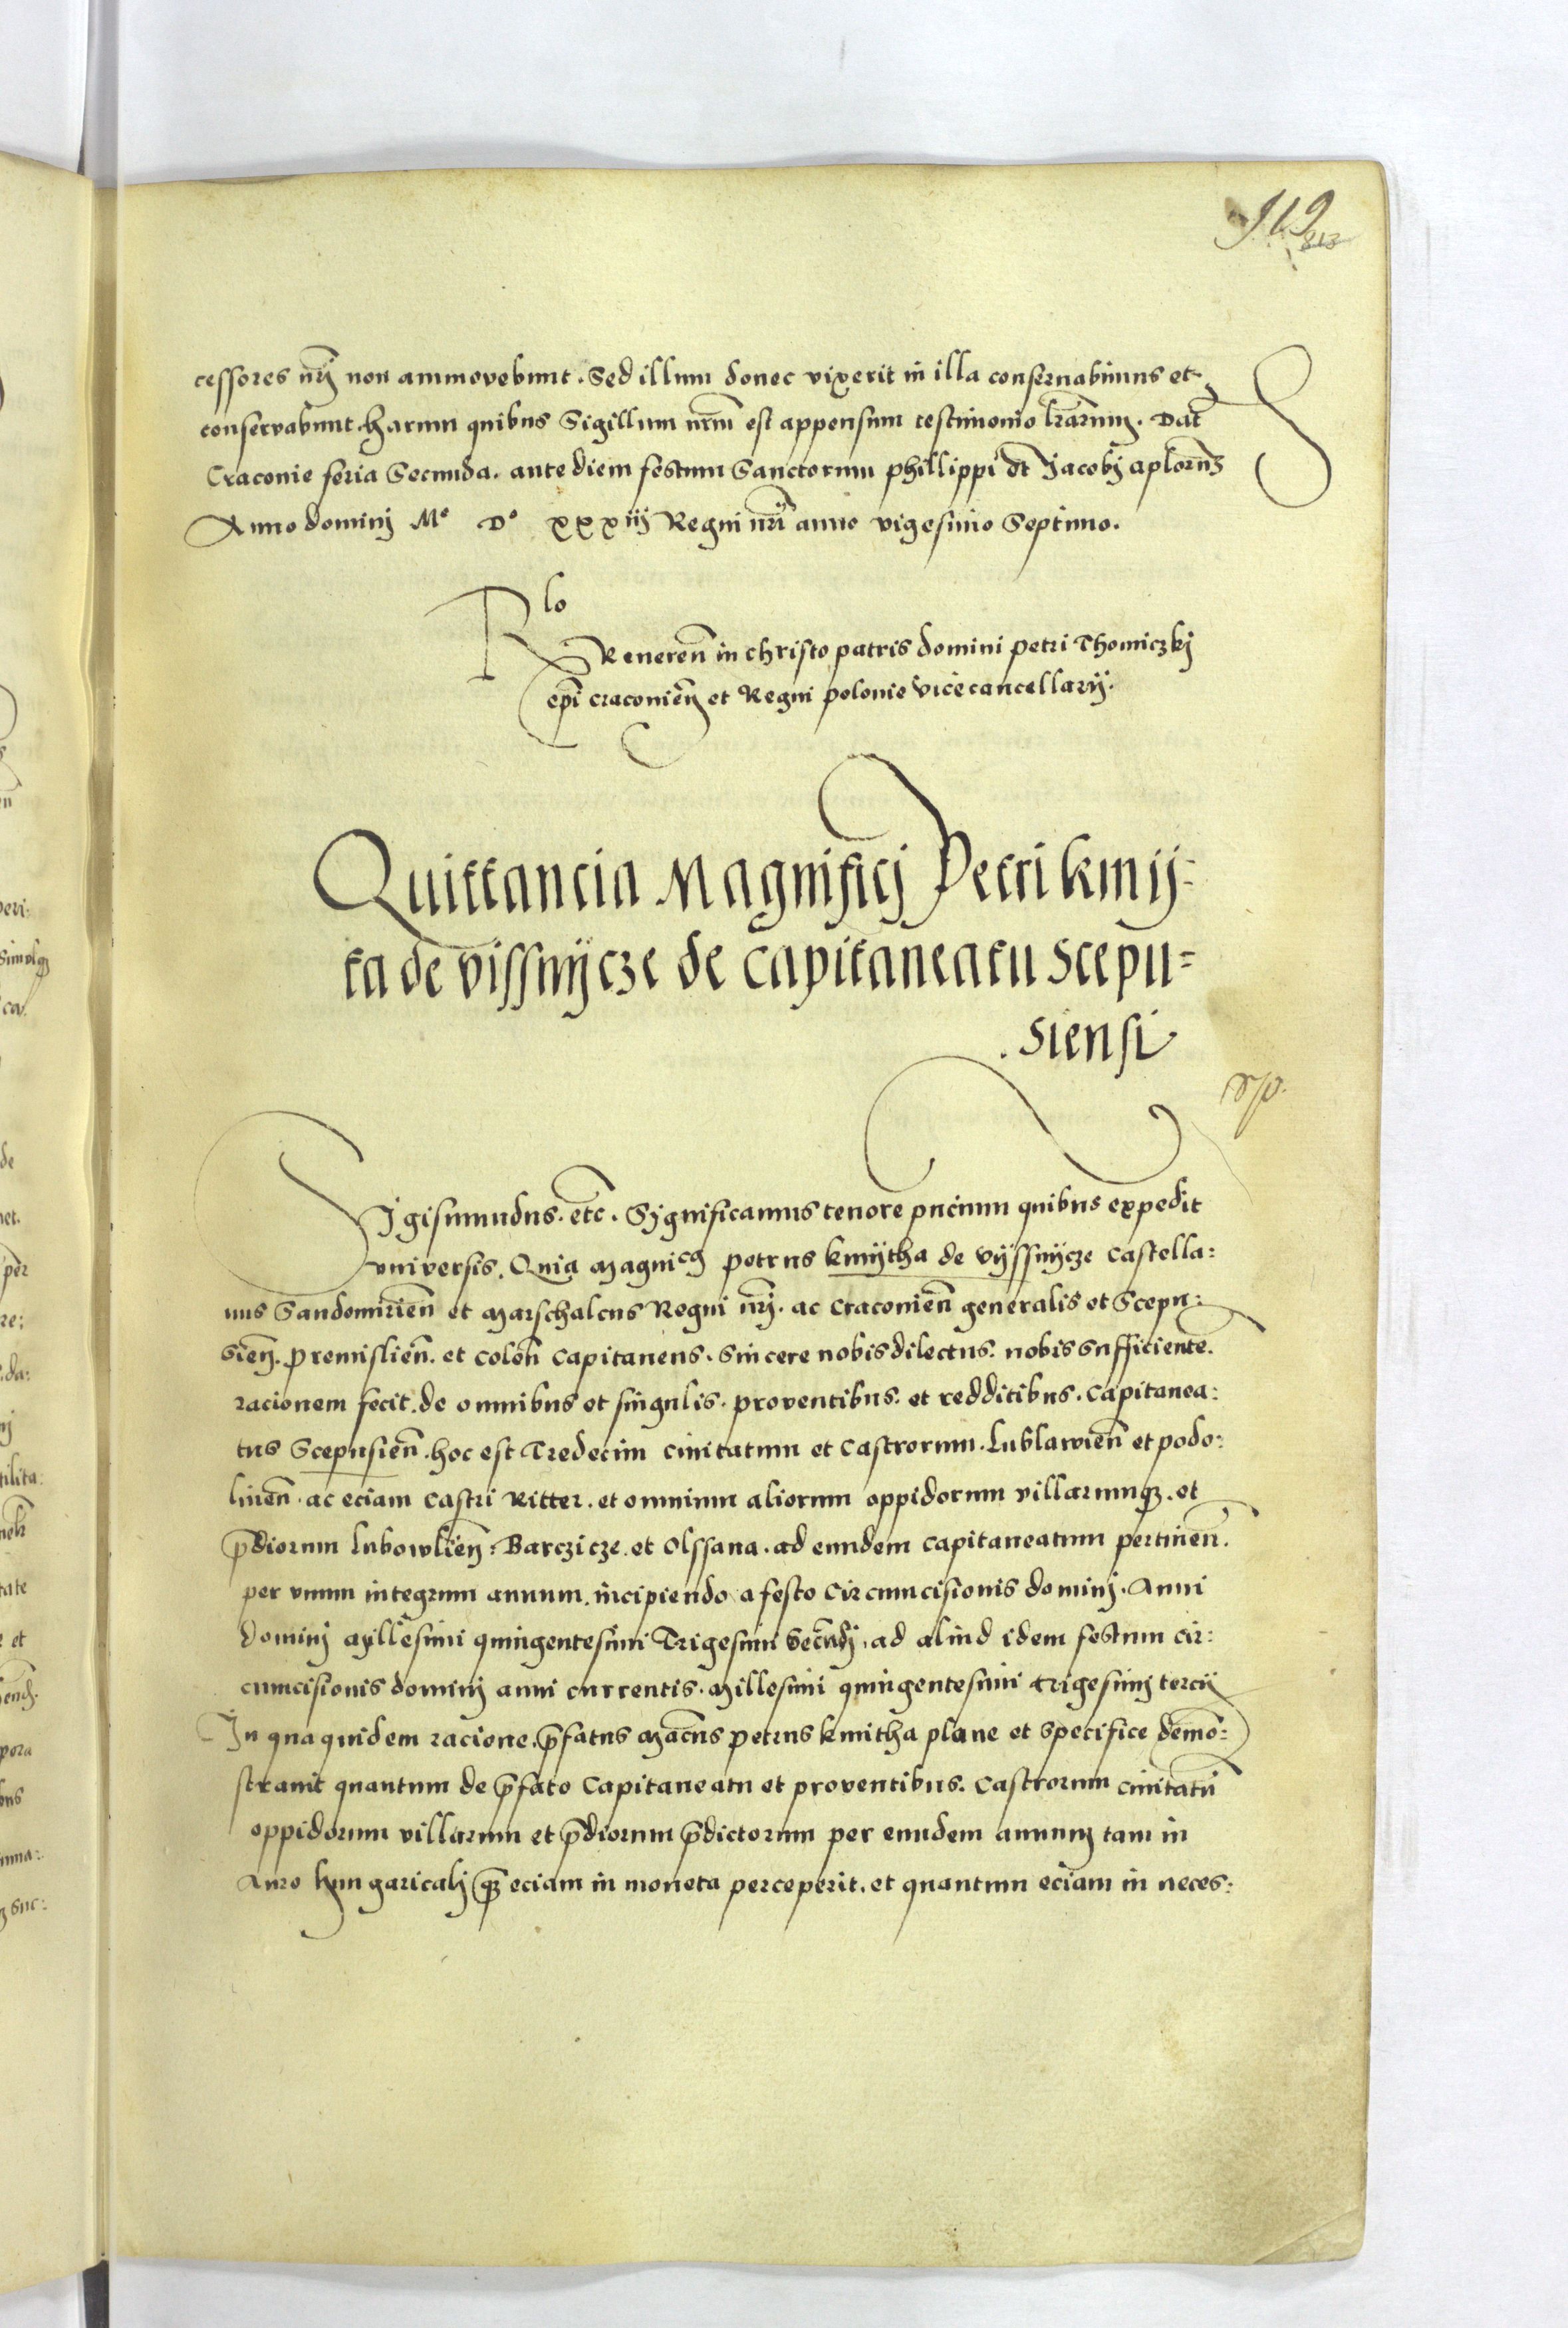 119
813
cessores nr̄j non ammovebunt. Sed illum donec vixerit in illa conseruabimus et
conservabunt. harum quibus Sigillum nr̄m est appensum testimonio lr̄arum. Dat̄
Craconie feria Secunda. ante diem festum Sanctorum phillippi et Jacobj aplorum
Anno dominj Mº Dº xxxiij Regni nr̄i anno vigesimo Septimo.
Rlo
Reueren̄ in christo patris domini petri Thomiczkj
ep̄i craconien̄ et Regni polonie vicecancellarij.
Quittancia Magnificj Petri kmij-
ta de vissnijcze de capitaneatu scepu=
. siensi
Sigismundus. etc̄. Sygnificamus tenore pn̄cium quibus expedit
vniversis. Quia magnicus petrus kmijtha de vijssnijcze castella:
nus Sandomirien̄ et Marschalcus Regni nr̄j. ac craconien̄ generalis et Scepu:
sien̄. premislien̄. et colen̄ capitaneus. Sincere nobis dilectus. nobis sufficiente.
racionem fecit. de omnibus et singulis. proventibus. et redditibus. capitanea:
tus Scepusien̄. hoc est Tredecim ciuitatum et castrorum. Lublawien̄ et podo:
linen̄. ac eciam castri Ritter. et omnium aliorum oppidorum villarumq3. et
p̄diorum lubowlien̄: Barczicze. et Olssana. ad eundem capitaneatum pertinen̄.
per vnum integrum annum. incipiendo a festo circumcisionis dominj. Anni
dominj Myllesimi quingentesimi Trigesimi Secundj. ad aliud idem festum cir:
cumcisionis dominj anni currentis. Millesimi quingentesimi trigesimj tercij
In qua quidem racione. p̄fatus Mac̄us petrus kmitha plane et specifice demo̅:
strauit quantum de p̄fato Capitaneatu et proventibus. castrorum ciuitatū
oppidorum villarum et p̄diorum p̄dictorum per eundem annum tam in
Auro hungaricalj q3 eciam in moneta perceperit. et quantum eciam in neces: